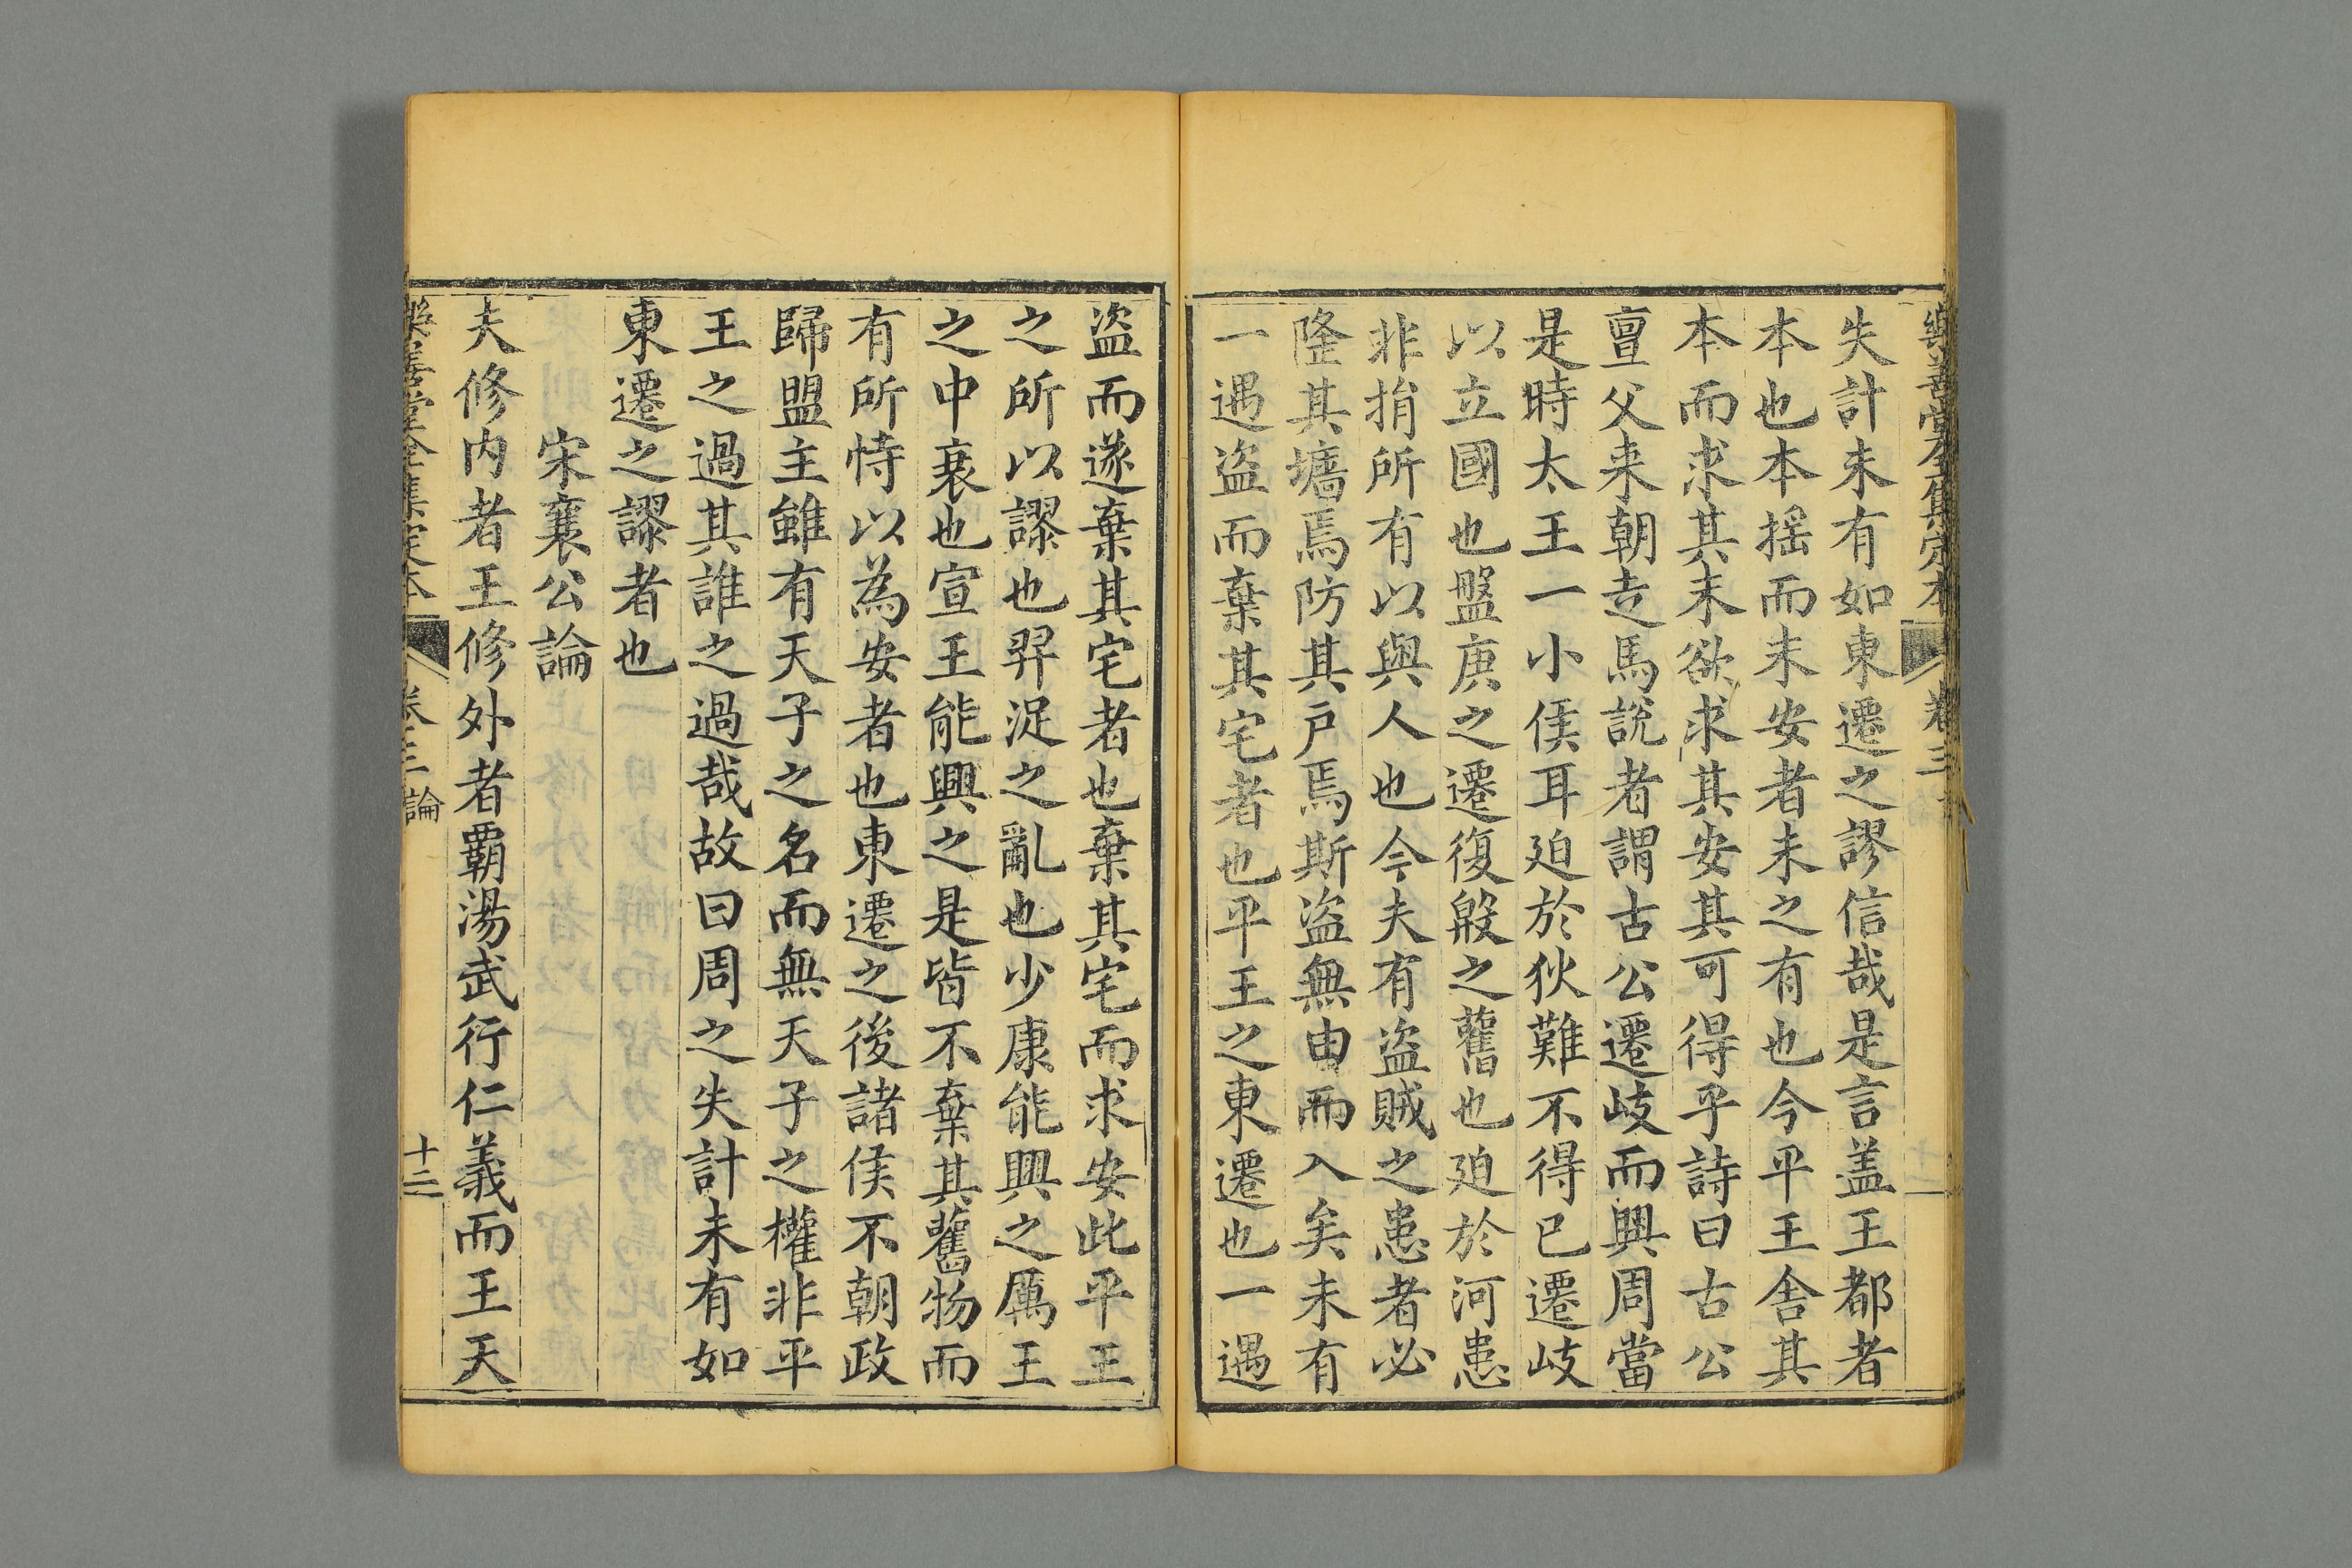 樂善堂全集定本 卷三
失計未有如東遷之謬信哉是言盖王都者
本也本揺而末安者未之有也今平王舎其
本而求其末欲求其安其可得乎詩曰古公
亶父来朝走馬說者謂古公遷岐而興周當
是時太王一小侯耳廹於狄難不得已遷岐
以立國也盤庚之遷復殷之舊也廹於河患
非捐所有以與人也今夫有盗賊之患者必
隆其墻焉防其戸焉斯盗無由而入矣未有
一遇盗而棄其宅者也平王之東遷也一遇
盗而遂棄其宅者也棄其宅而求安此平王
之所以謬也羿浞之亂也少康能興之厲王
之中衰也宣王能興之是皆不棄其舊物而
有所恃以為安者也東遷之後諸侯不朝政
歸盟主雖有天子之名而無天子之權非平
王之過其誰之過哉故曰周之失計未有如
東遷之謬者也
宋襄公論
夫修内者王修外者覇湯武行仁義而王天
樂善堂全集定本 卷三 論 十二